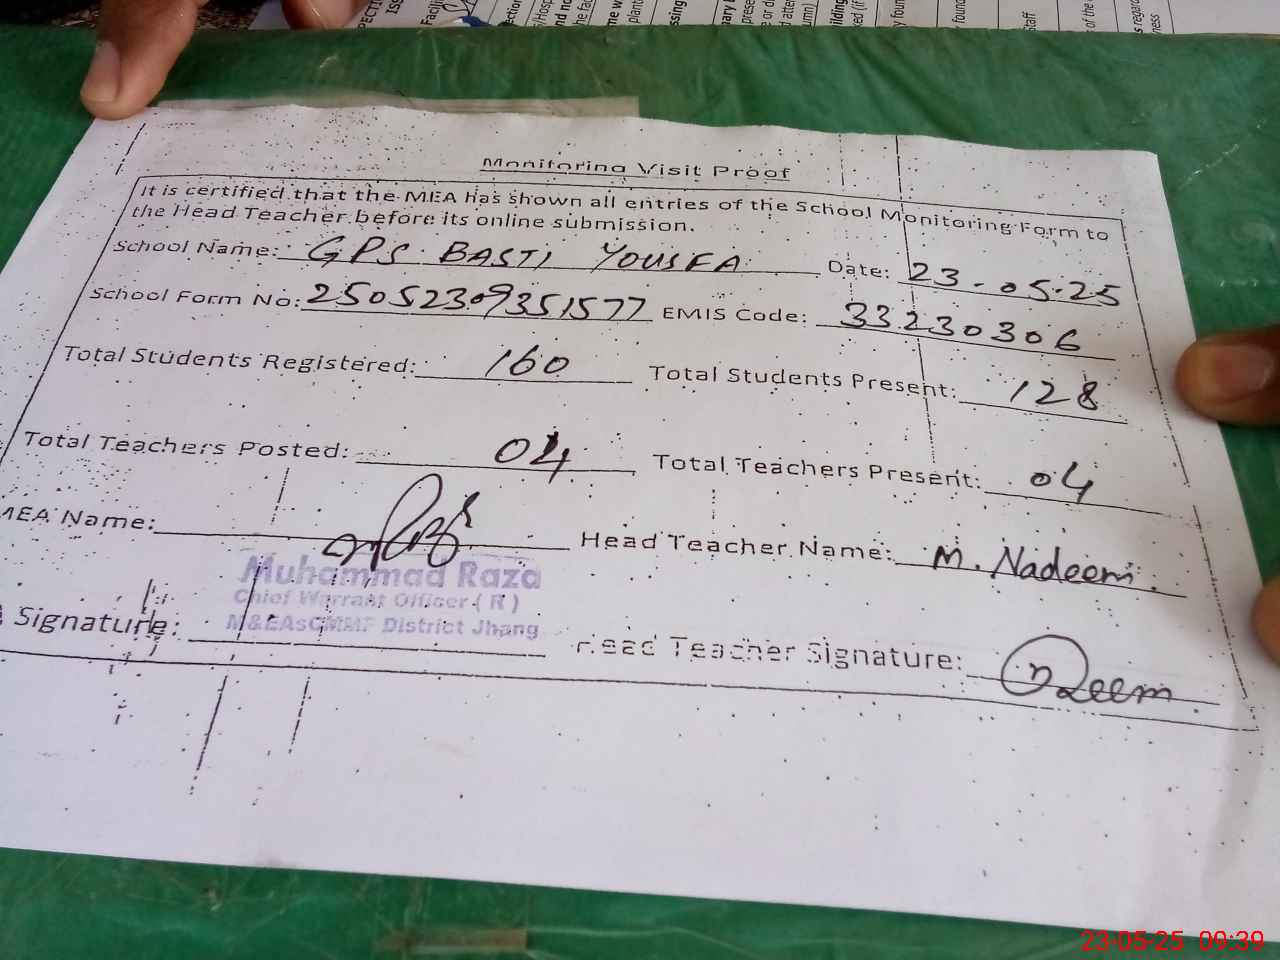 Monitoring Visit Proof
It is certified that the MEA has shown all entries of the School Monitoring Form to
the Head Teacher before its online submission.
School Name: GPS BASTI YOUSFA Date: 23-05-25
School Form No: 25052309351577 EMIS Code: 33230306
Total Students Registered: 160 Total Students Present: 128
Total Teachers Posted: 04 Total Teachers Present: 04
MEA Name: Head Teacher Name: M. Nadeem.
Muhammad Raza
Chief Warrant Officer (R)
M&EAsCMMF District Jhang
Signature: Head Teacher Signature: Nadeem
23-05-25 09:39